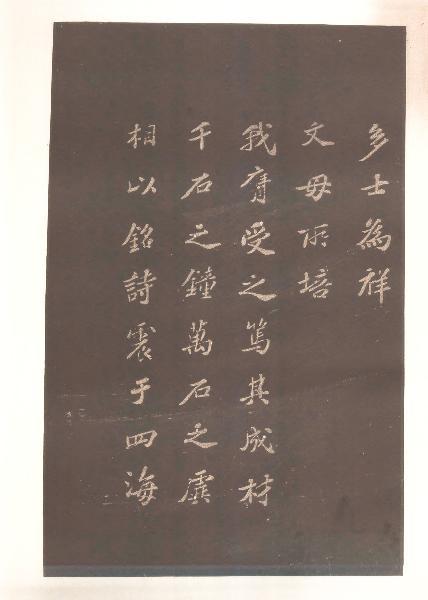 多士為祥
文母所培
我膺受之篤其成材
千石之鐘萬石之虡
相以銘詩震于四海